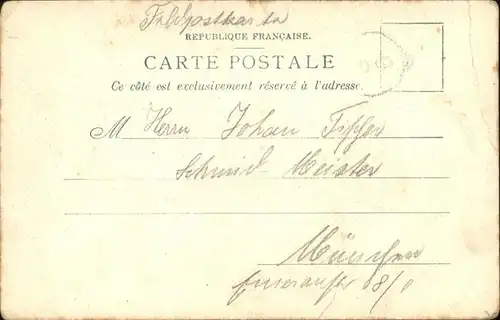 Feldpostkarte
REPUBLIQUE FRANÇAISE.
CARTE POSTALE
Ce côté est exclusivement réservé à l'adresse.
M Herrn Johan
Schmid-Meister
München
8/0